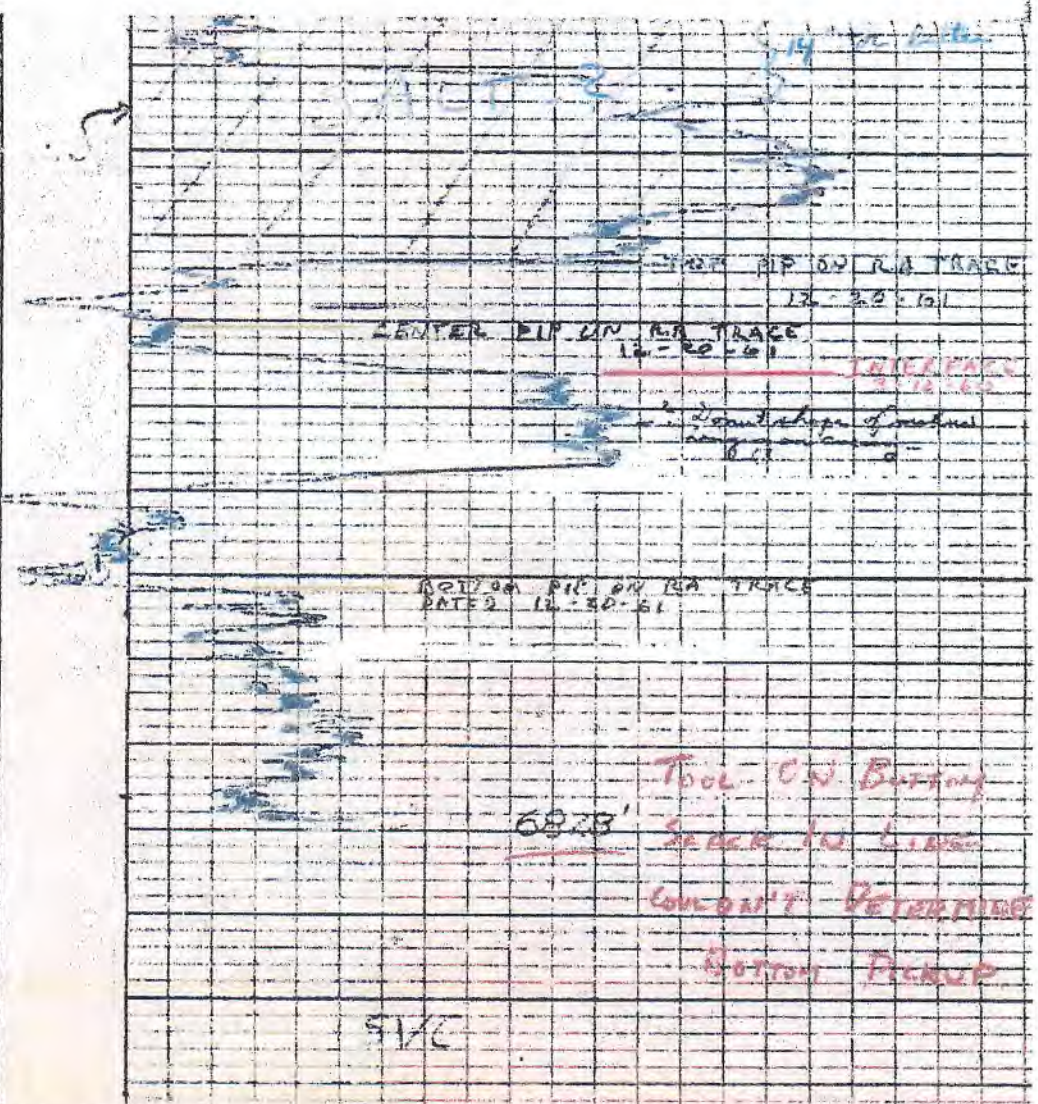 14" or better
SALT - 2
TOP PIP ON RA TRACE
12-20-61
CENTER PIP ON RA TRACE
12-20-61
INTERFACE
? Donut shape of
BOTTOM PIP ON RA TRACE
DATED 12-20-61
TOOL ON BOTTOM
6828'
SLACK IN LINE
COULDN'T DETERMINE
BOTTOM PICKUP